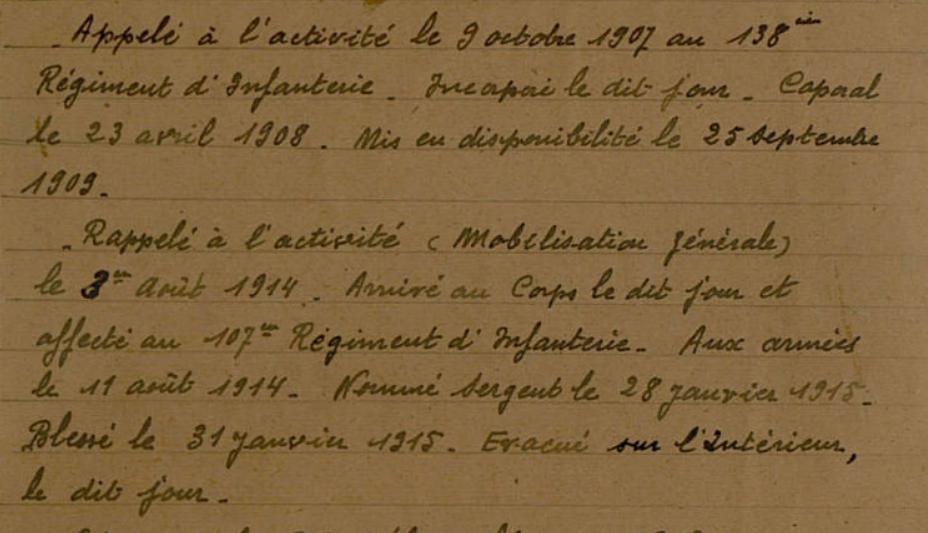 Appelé à l'activité le 9 octobre 1907 au 138ème
Régiment d'Infanterie _ Incorporé le dit jour _ Caporal
le 23 avril 1908 _ Mis en disponibilité le 25 Septembre
1909 _
_ Rappelé à l'activité (Mobilisation générale)
le 3me août 1914 _ Arrivé au Corps le dit jour et
affecté au 107me Régiment d'Infanterie _ Aux armées
le 11 août 1914 _ Nommé Sergent le 28 Janvier 1915 _
Blessé le 31 Janvier 1915 _ Evacué sur l'Intérieur,
le dit jour _